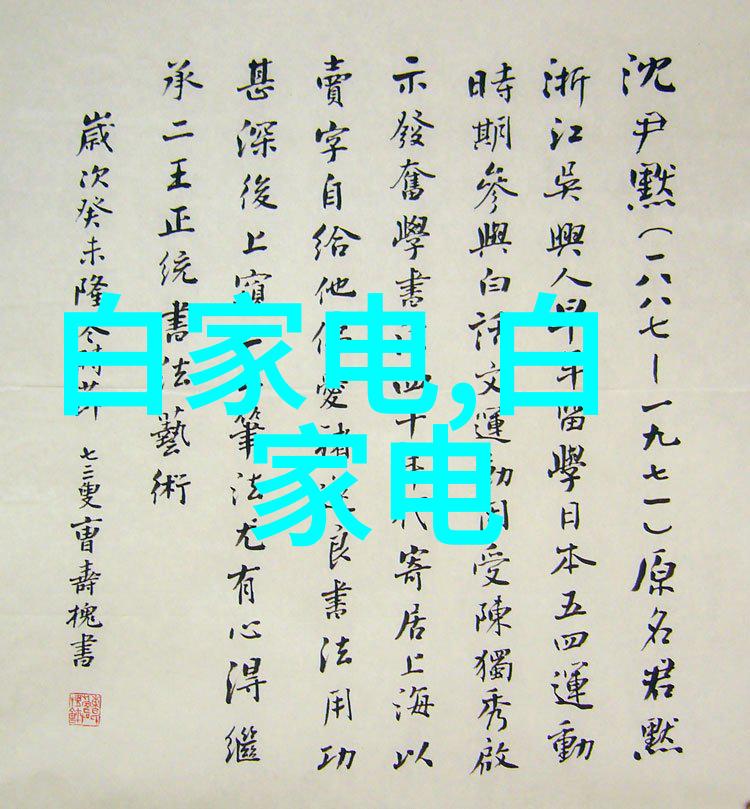 沈尹默（一八八七—一九七一）原名君默
浙江吳興人早年留學日本五四運動
時期參與白話文運動因受陳獨秀啟
示發奮學書四十年代寄居上海以
賣字自給他愛褚遂良書法用功
甚深後上筆法尤有心得繼
承二王正統書法藝術
歲次癸未隆 七三叟曹壽槐書
白家电,白
家电